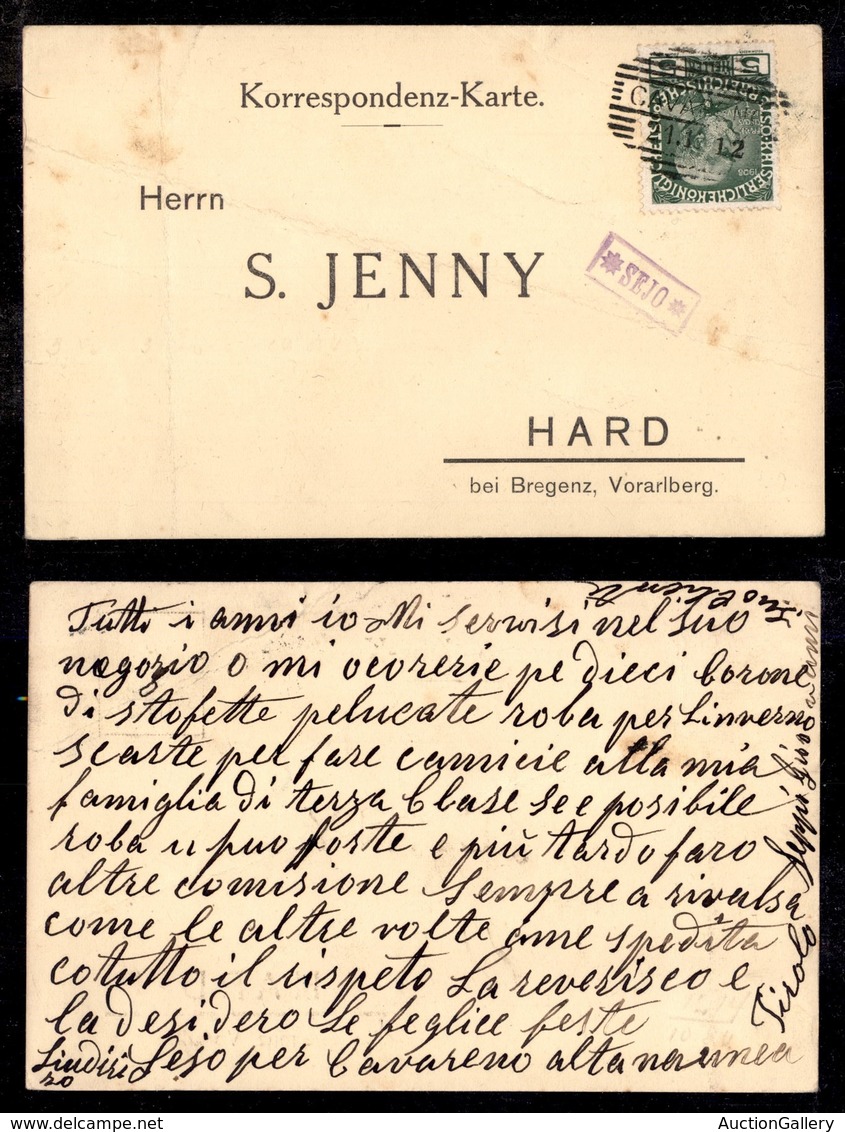 Korrespondenz-Karte.
Herrn
S. JENNY
HARD
bei Bregenz, Vorarlberg.
SEJO
5 5
1908
CAVA
12
Tutti i anni io Mi servisi nel suo
negozio o mi ocorerie pe dieci Corone
di stofette pelucate roba per Linverno
scarte per fare camicie alla mia
famiglia di terza Clase se e posibile
roba u puo forte e più tardo faro
altre comisione sempre a rivalsa
come le altre volte ame spedita
cotutto il rispeto La reverisco e
la desidero Le feglice feste
Lindiri Sejo per Cavareno alta
zo
Tirolo Seppi Giuvani
AuctionGallery